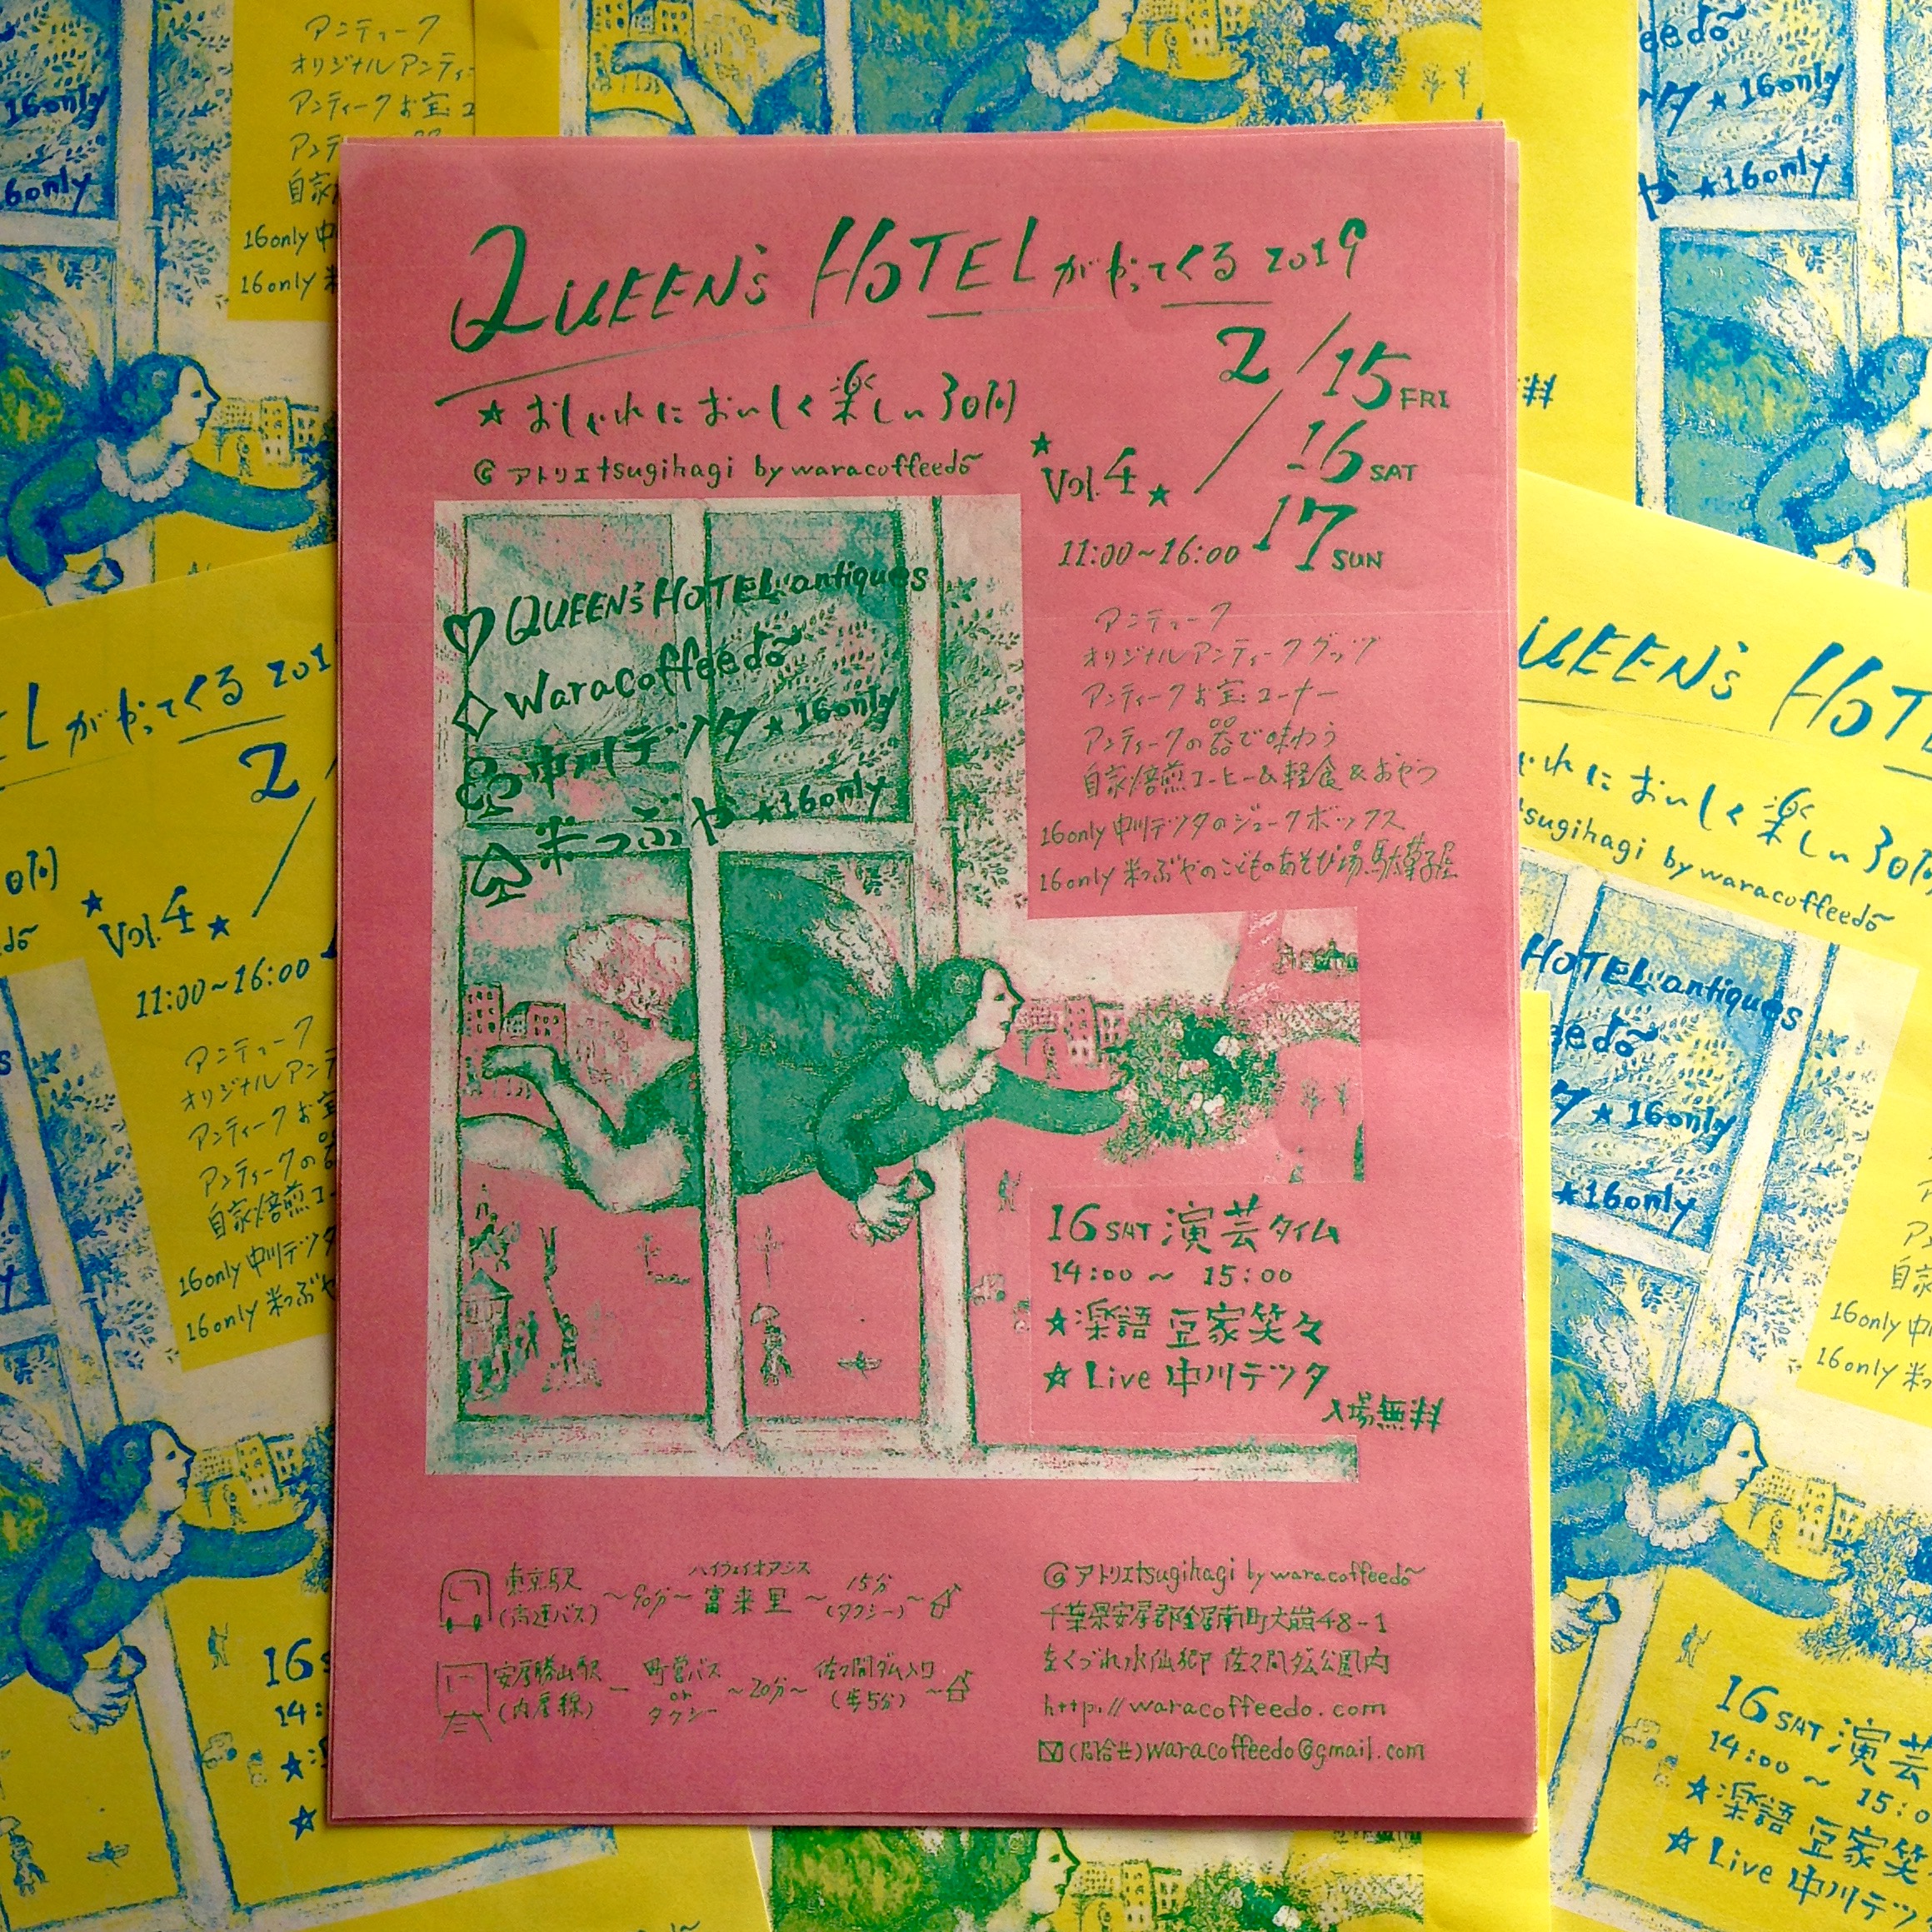 QUEEN's HOTELがやってくる2019
★おしゃれにおいしく楽しい3日間
@アトリエtsugihagi by waracoffeedo~
★Vol.4★
2/15FRI
16SAT
17SUN
11:00~16:00
♡QUEEN's HOTEL antiques
♢Waracoffeedo~
♧中川テツタ★16only
♤米つぶや★16only
アンティーク
オリジナルアンティークグッヅ
アンティークお宝コーナー
アンティークの器で味わう
自家焙煎コーヒー&軽食&おやつ
16only 中川テツタのジュークボックス
16only 米つぶやのこどものあそび場、駄菓子屋
16SAT 演芸タイム
14:00 ~ 15:00
★楽語 豆家笑々
★Live 中川テツタ
入場無料
東京駅
(高速バス)
~90分~
ハイウェイオアシス
富来里
~15分~
(タクシー)
安房勝山駅
(内房線)
町営バス
or
タクシー
~20分~
佐々間ダム入口
(歩5分)
@アトリエtsugihagi by waracoffeedo~
千葉県安房郡鋸南町大崩48-1
をくづれ水仙郷 佐々間ダム公園内
http://waracoffeedo.com
(問合せ)waracoffeedo@gmail.com